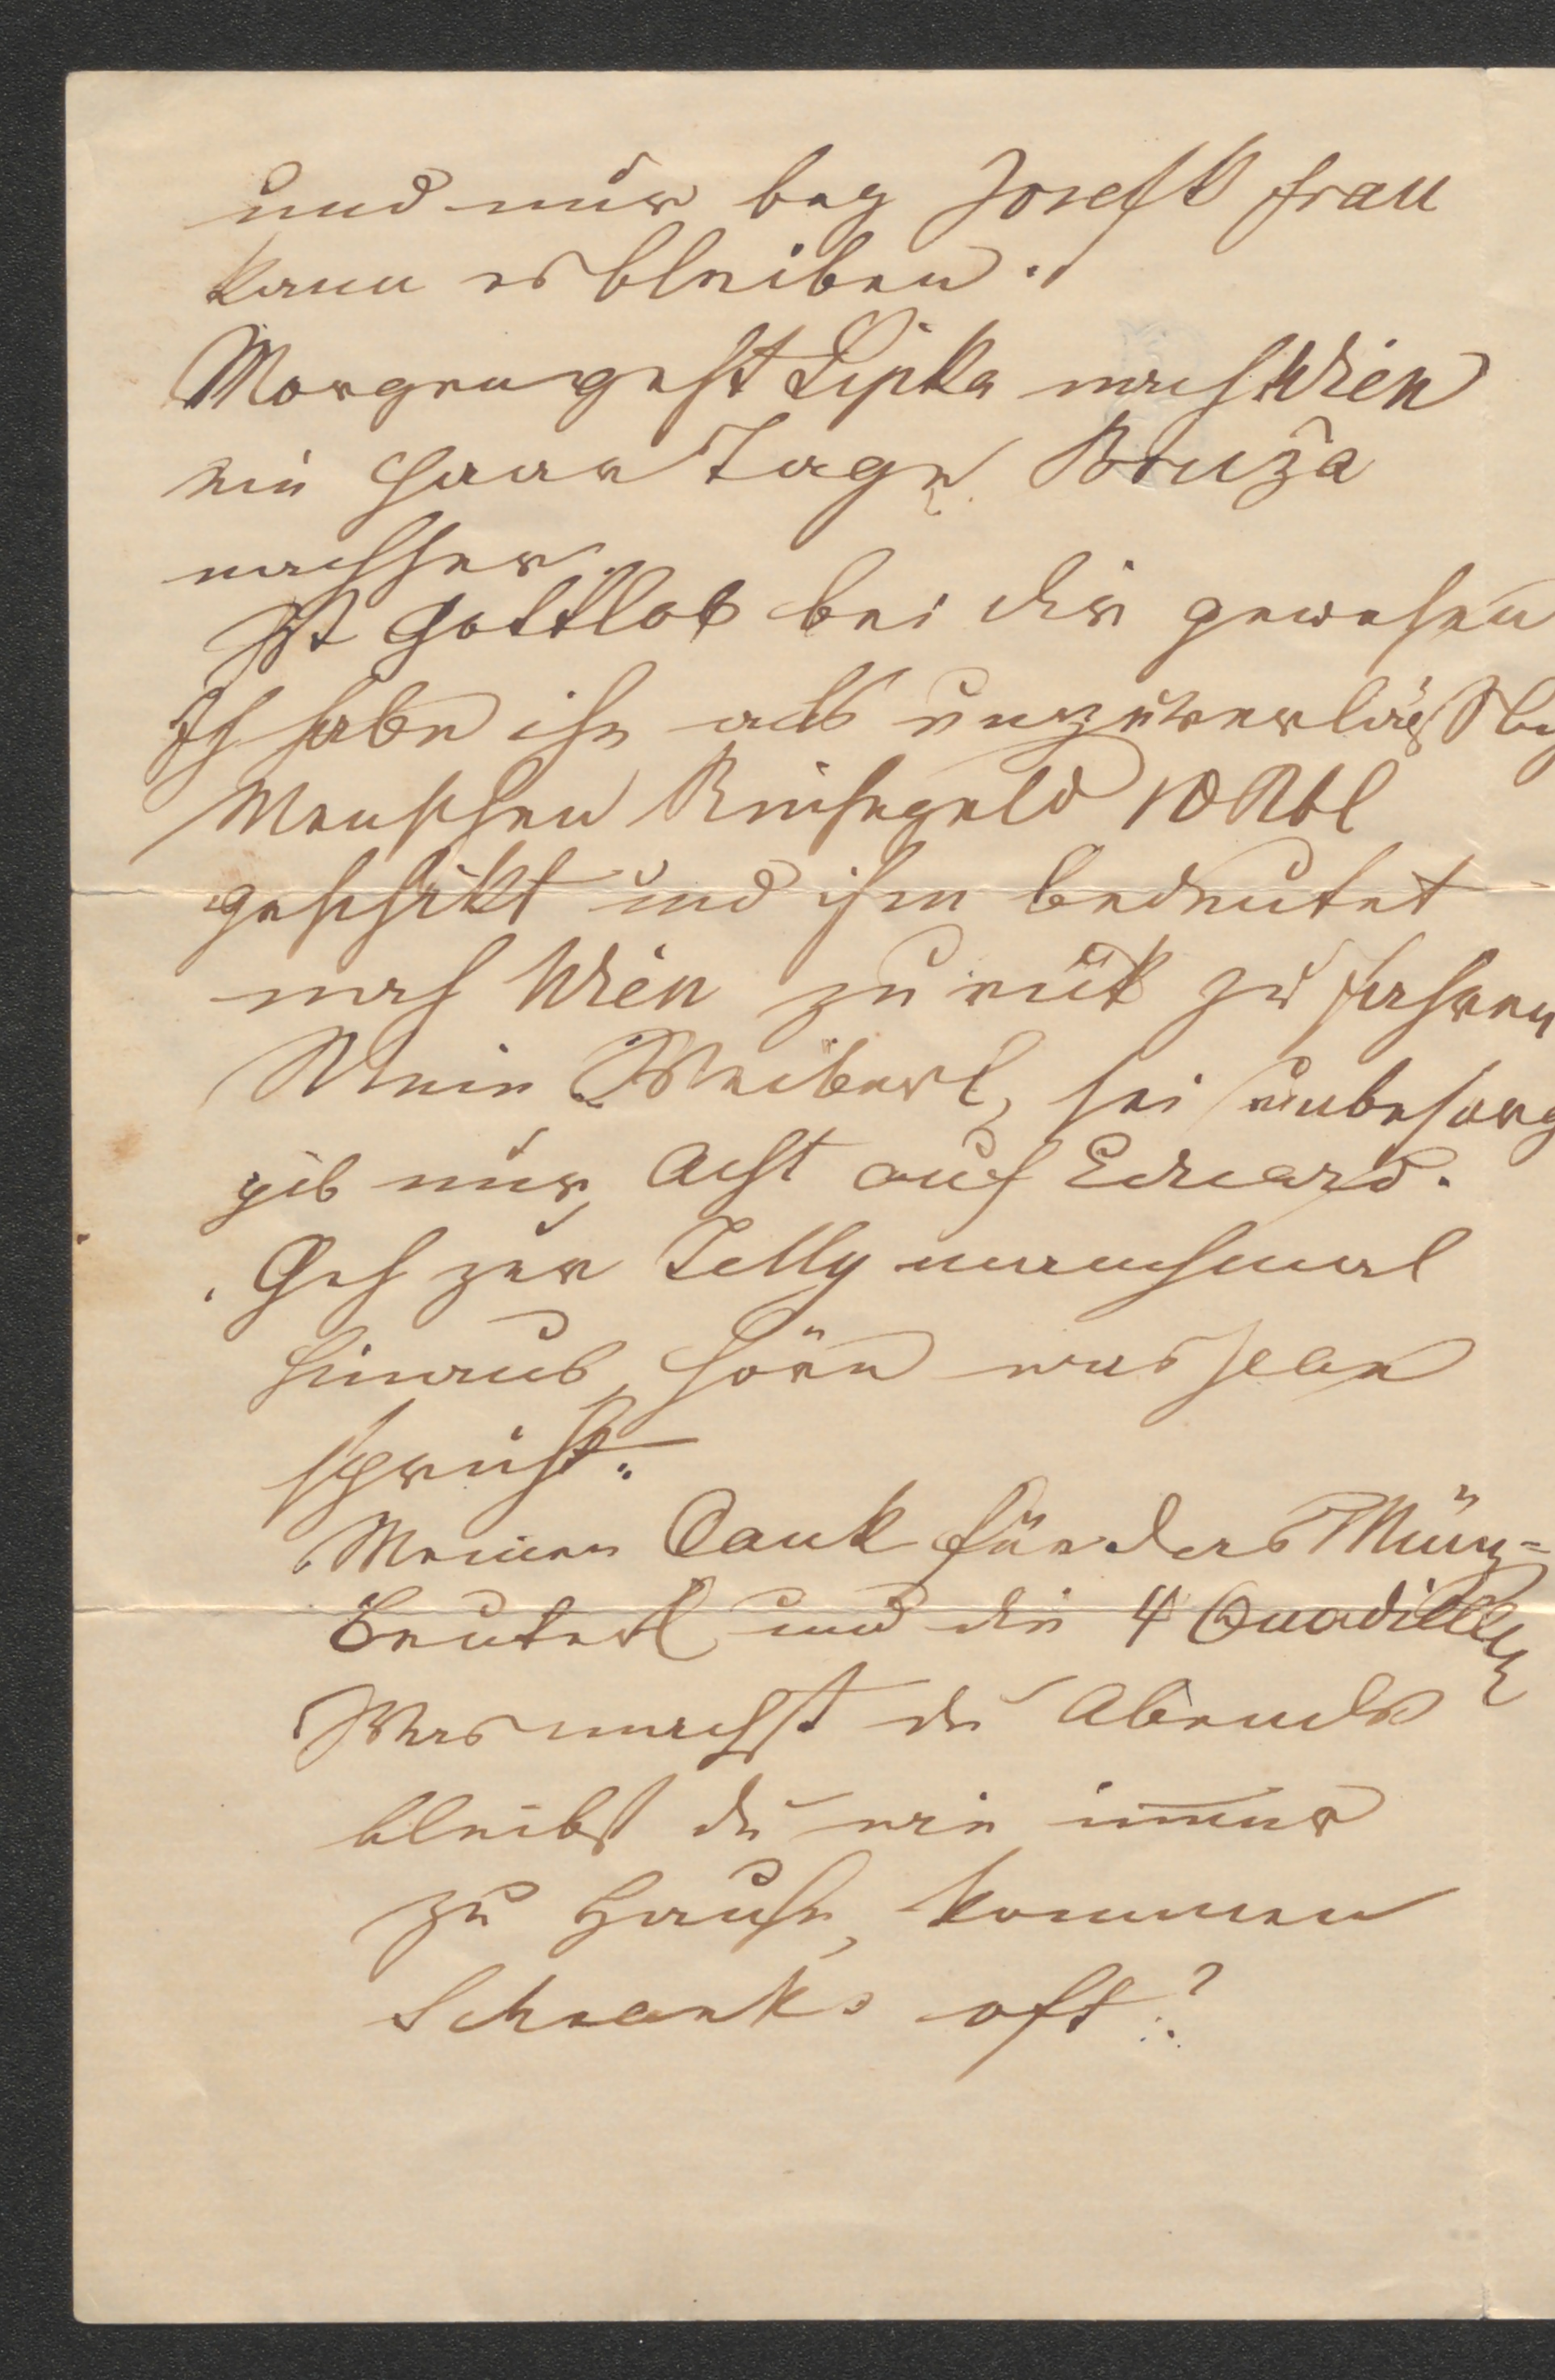 und nur bey Josefs Frau
kann es bleiben.
Morgen geht Lipka nach Wien
ein Paar Tage Bruža
nachher.
Ist Gottlob bei dir gewesen
Ich habe ihn als unzuverlässlig
Menschen Reisegeld 10 Rbl
geschikt und ihm bedeutet
nach Wien zurük zu fahren
Mein Weiberl, sei unbesorg
gib nur Acht auf Eduard.
Geh zur Telly manchmal
hinaus, hören was selbe
spricht.
Meinen Dank für das Münz=
beuterl und die 4 Quadrillen
Was machst du Abends
bleibst du wie immer
zu Hause, kommen
Schranks oft?